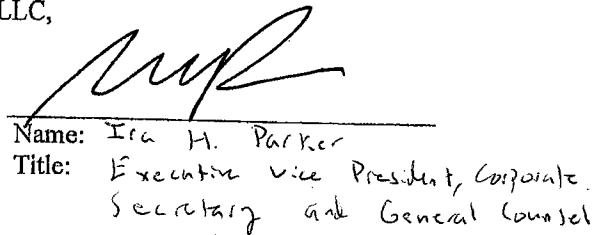 LLC,
Name: Ira H. Parker
Title: Executive Vice President, Corporate
Secretary and General Counsel